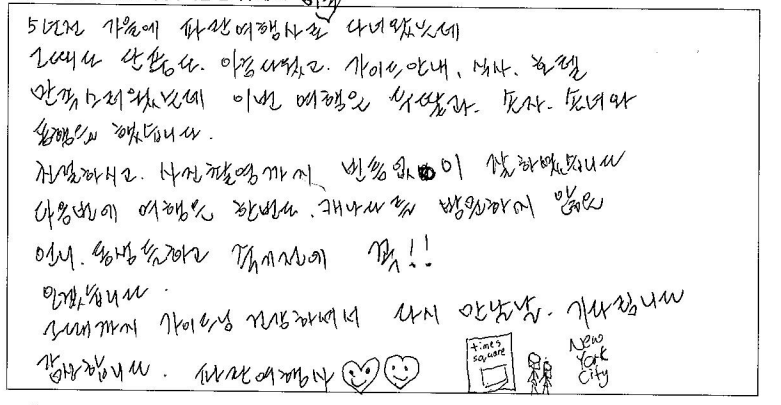 5년전 가을에 파란여행사로 다녀왔는데
그때는 단풍도. 아름다웠고. 가이드안내, 식사. 호텔
만족스러웠는데 이번 여행은 두딸과. 손자. 손녀와
동행을 했습니다.
친절하시고. 사진촬영까지 빈틈없이 잘하셨습니다
다음번에 여행은 한번도. 캐나다를 방문하지 않은
언니. 동생들하고 꼭!!
오겠습니다.
그때까지 가이드님 건강하셔서 다시 만날날. 기다립니다
감사합니다. 파란여행사
times
square
New
York
City